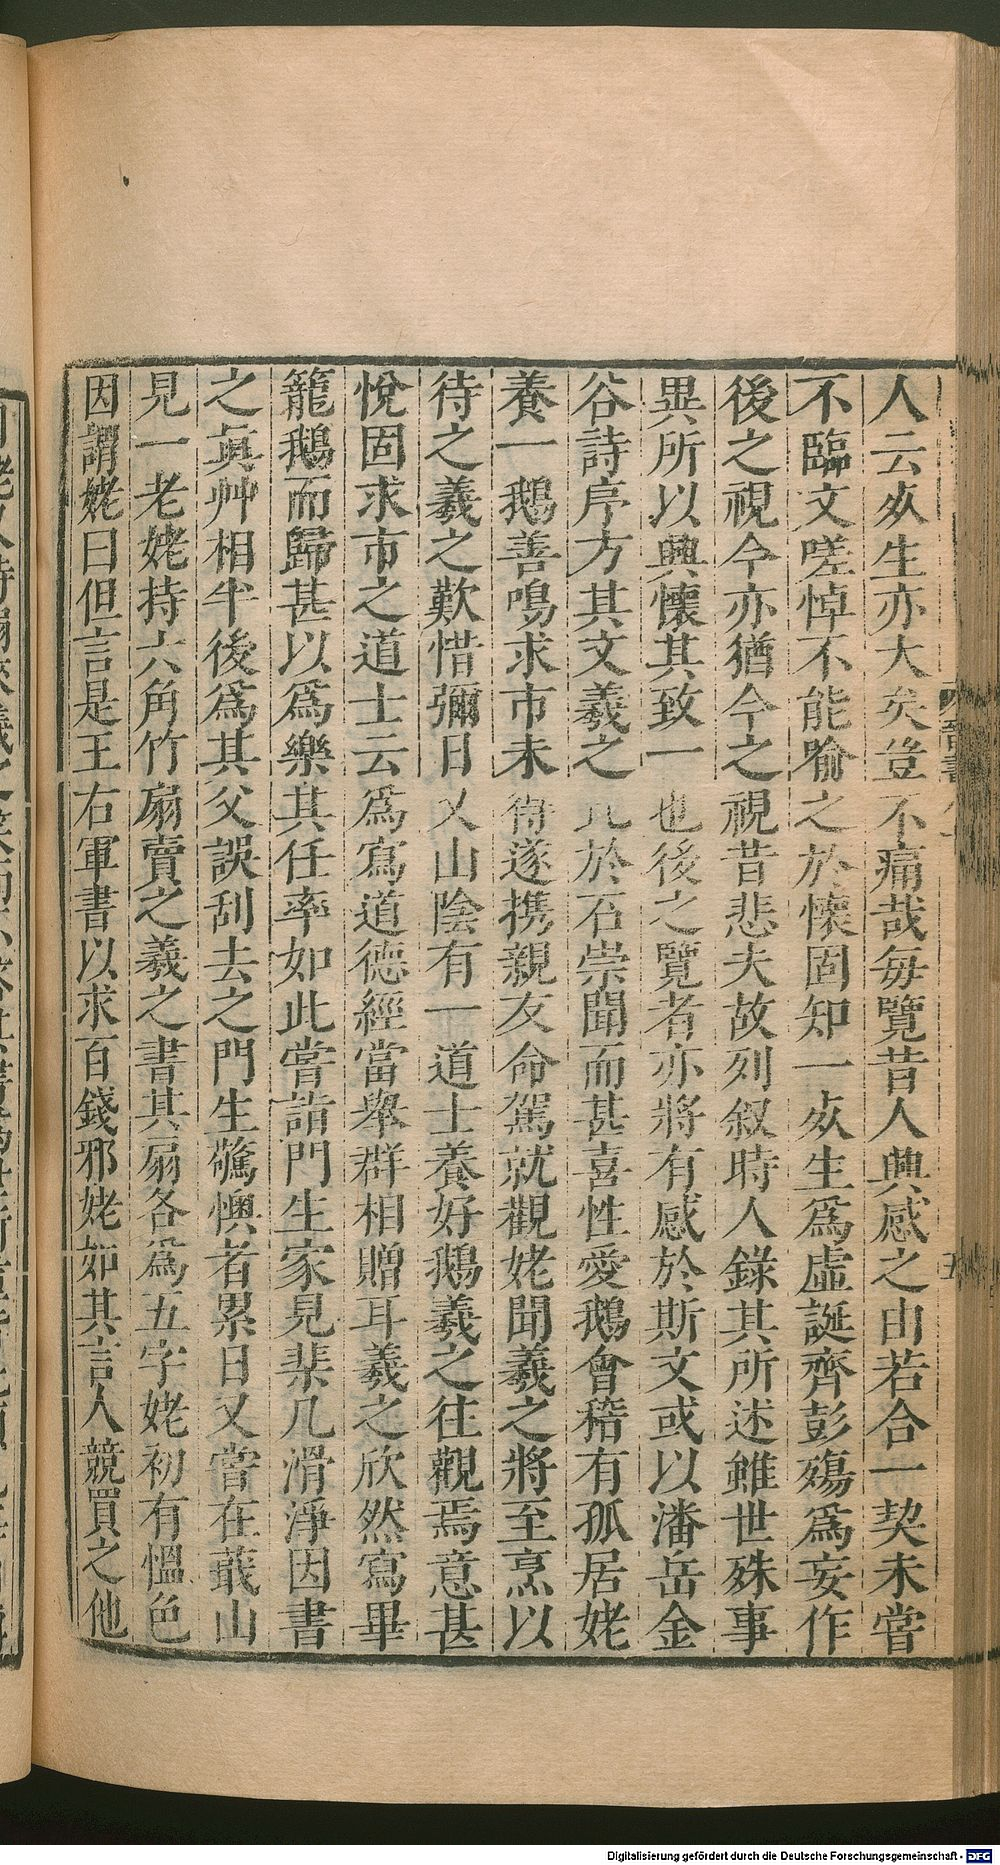 人云死生亦大矣豈不痛哉每覽昔人興感之由若合一契未嘗
不臨文嗟悼不能喻之於懷固知一死生爲虛誕齊彭殤爲妄作
後之視今亦猶今之視昔悲夫故列叙時人錄其所述雖世殊事
異所以興懷其致一也後之覽者亦將有感於斯文或以潘岳金
谷詩序方其文羲之比於石崇聞而甚喜性愛鵝會稽有孤居姥
養一鵝善鳴求市未得遂携親友命駕就觀姥聞羲之將至烹以
待之羲之歎惜彌日又山陰有一道士養好鵝羲之往觀焉意甚
悅固求市之道士云爲寫道德經當舉群相贈耳羲之欣然寫畢
籠鵝而歸甚以爲樂其任率如此嘗詣門生家見棐几滑淨因書
之眞艸相半後爲其父誤刮去之門生驚懊者累日又嘗在蕺山
見一老姥持六角竹扇賣之羲之書其扇各爲五字姥初有慍色
因謂姥曰但言是王右軍書以求百錢邪姥如其言人競買之他
Digitalisierung gefördert durch die Deutsche Forschungsgemeinschaft - DFG